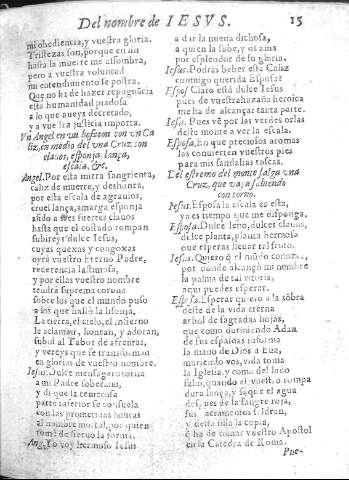 Del nombre de IESVS. 15
mi obediencia, y vuestra gloria.
Tristezas son, porque en mi
hasta la muerte me assombra,
pero à vuestra voluntad
mi entendimiento se postra.
Que no ha de hazer repugnácia
esta humanidad piadosa
a lo que aueys decretado,
y a vuestra justicia importa.
Vn Angel en vn bofeton con vn Ca
liz, en medio del vna Cruz con
clauos, esponja, lança,
escala, &c.
Angel. Por esta murra sangrienta,
caliz de muerte, y deshonra,
por esta escala de agrauios,
cruel lança, amarga esponja
asido a tres fuertes clauos
hasta que el costado rompan
subireys dulce Iesus,
cuyas quexas y congoxas
oyrà vuestro Eterno Padre,
reuerencia lastimosa,
y por ellas vuestro nombre
tendra suprema corona
sobre los que el mundo puso
a los que hallò la lisonja.
La tierra, el cielo, el infierno
le aclaman, honran, y adoran,
subid al Tabor de afrentas,
y vereys que se transforman
en glorias de vuestro nombre.
Iesus. Dulce mensagero torna
a mi Padre soberano,
y di que la temerosa
parte inferior se consuela
con las prometidas honras
al nombre mortal, por quien
tomè de sieruo la forma.
Ang. Yo voy hermoso Iesus
a dar la nueua dichosa,
a quien la sabe, y os ama
por esplendor de su gloria.
Iesus. Podras beber este Caliz
conmigo querida Esposa?
Esposa. Claro està dulce Iesus
pues de vuestra hazaña heroica
me ha de alcançar tanta parte.
Iesus. Pues vè por las verdes orlas
deste monte a ver la escala.
Esposa. En que preciosos aromas
las conuierten vuestros pies
para mis sandalias toscas.
Del estremo del monte salga vna
Cruz, que vaya subiendo
con torno.
Iesus. Esposa la escala es esta,
ya es tiempo que me disponga.
Esposa. Dulce leño, dulces clauos,
dulce planta, planta hermosa
que esperas lleuar tal fruto.
Iesus. Quiero q̃ el mũdo conozca,
por donde alcançò mi nombre
la palma de tal vitoria,
aqui puedes esperar.
Esposa. Esperar quiero a la sõbra
deste de la vida eterna
arbol de sagradas hojas,
que como durmiendo Adan
de sus espaldas informa
la mano de Dios a Eua,
muriendo vos, vida toma
la Iglesia, y como del lado
salio, quando el vuestro rompa
dura lança, y saque el agua
despues de la sangre roja,
sus acramentos saldran,
y desta silla la copia,
q̃ ha de tomar vuestro Apostol
en la Catedra de Roma.
Pue-